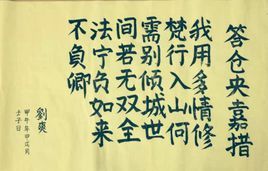 答仓央嘉措
我用多情修
梵行入山何
需别倾城世
间若无双全
法宁负如来
不負卿
劉爽
甲午年甲戌月
壬子日